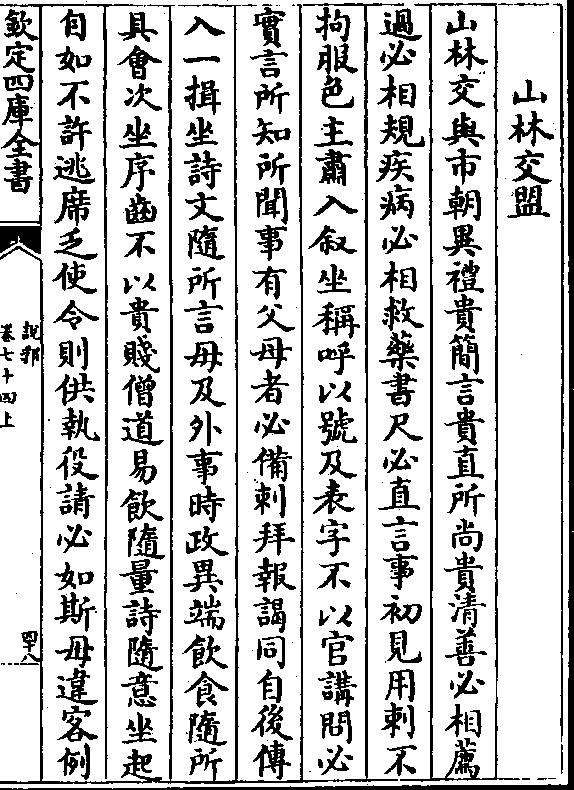 山林交盟
山林交與市朝異禮貴簡言貴直所尚貴清善必相薦
過必相規疾病必相救藥書尺必直言事初見用刺不
拘服色主肅入叙坐稱呼以號及表字不以官講問必
實言所知所聞事有父母者必備刺拜報謁同自後傳
入一揖坐詩文隨所言毋及外事時政異端飲食隨所
具會次坐序齒不以貴賤僧道易飲隨量詩隨意坐起
自如不許逃席乏使令則供執役請必如斯毋違客例
欽定四庫全書
說郛
卷七十四上
四十八